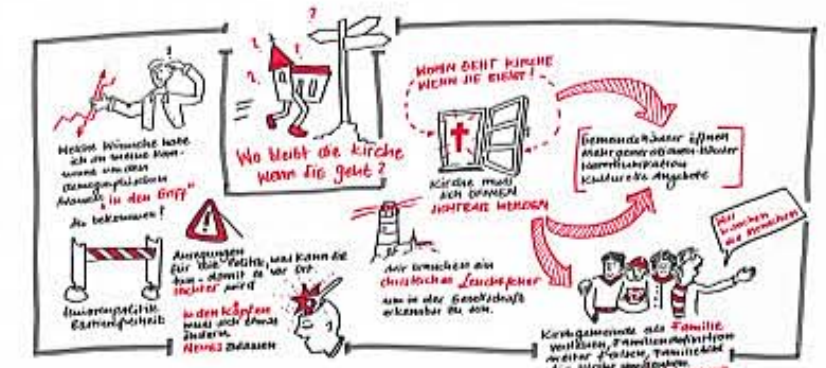 Welche Wünsche habe
ich an meine Kom-
mune um den
demographischen
Wandel "in den Griff"
zu bekommen?
Wo bleibt die Kirche
wenn sie geht?
WOHIN GEHT KIRCHE
WENN SIE BLEIBT!
Kirche muss
SICHTBAR WERDEN
Gemeindehäuser öffnen
Mehrgenerationen-Häuser
Kommunikation
Kulturelle Angebote
Seniorenpolitik
Barrierefreiheit
Anregungen
für die Politik, was kann die
tun - damit es vor Ort
leichter wird
in den Köpfen
muss sich etwas
ändern
Neues zulassen
Wir brauchen ein
christliches Leuchtfeuer
um in der Gesellschaft
erkennbar zu sein.
Wir
brauchen
die Menschen!
Kirchgemeinde als Familie
verstehen, Familiendefinition
weiter fassen,